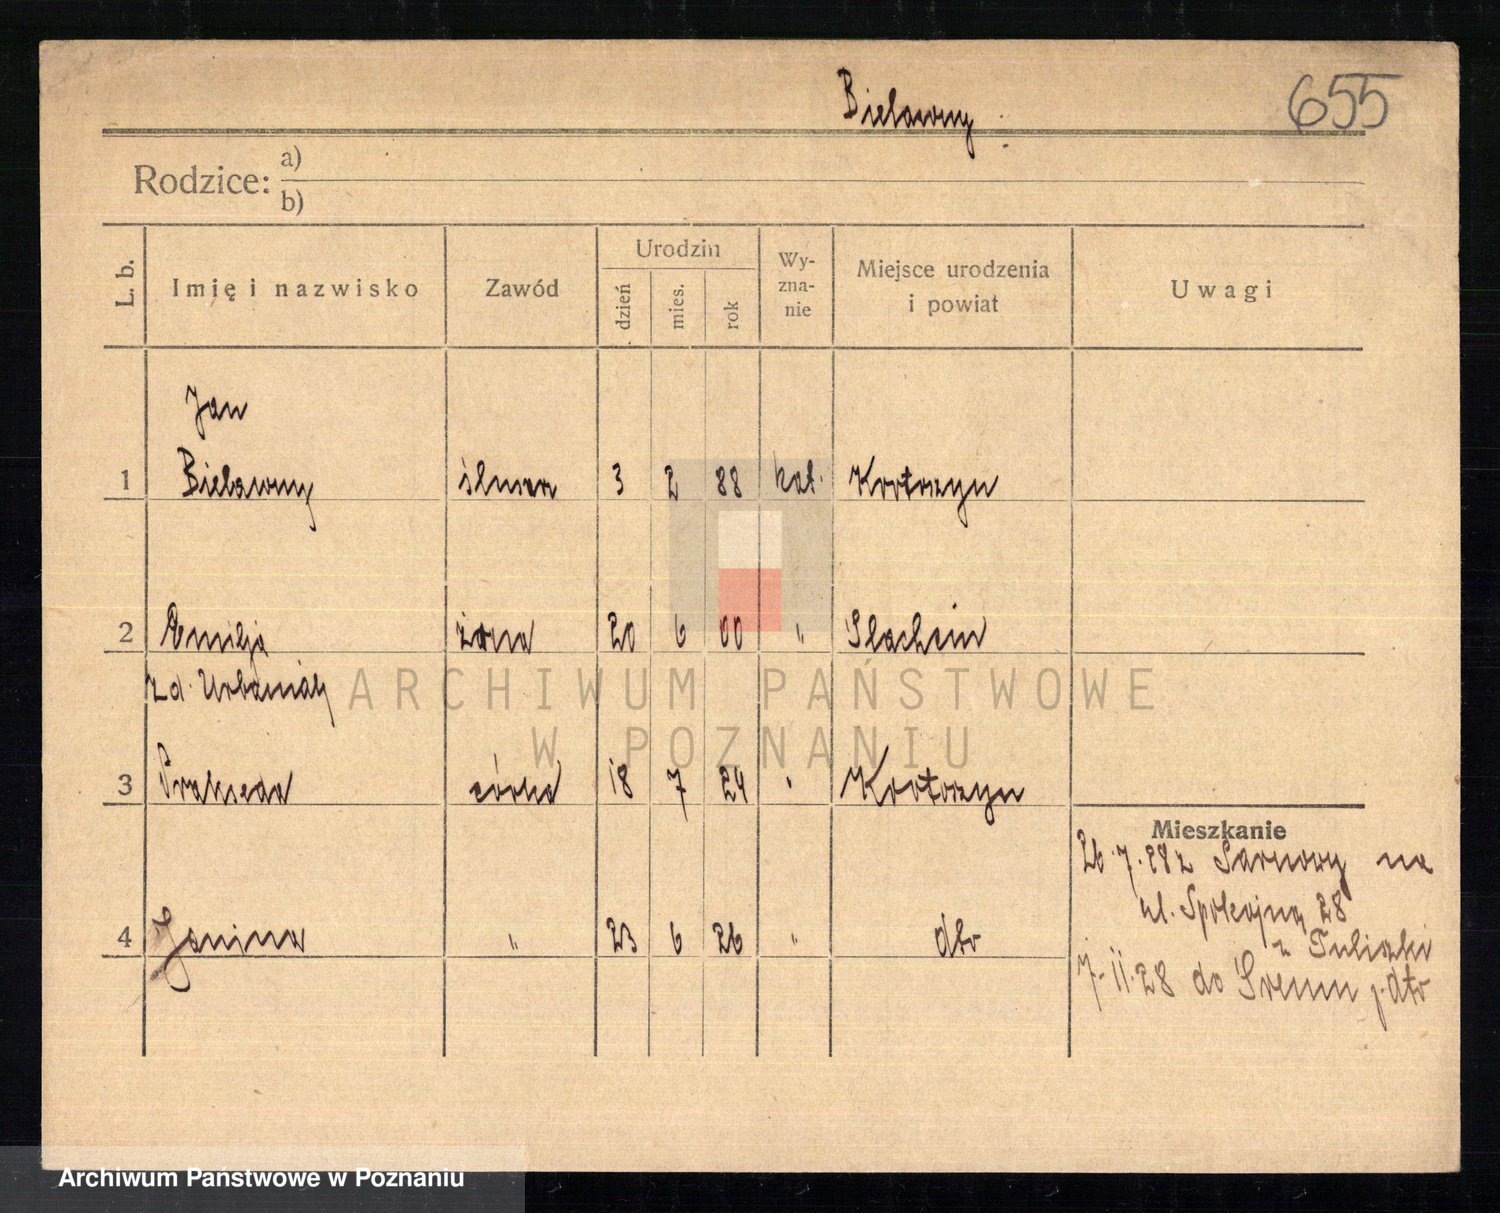 Bielawny
655
Rodzice: a)
b)
L. b.
Imię i nazwisko
Zawód
Urodzin
dzień
mies.
rok
Wy-
zna-
nie
Miejsce urodzenia
i powiat
Uwagi
Jan
1 Bielawny 3 2 88 kat.
2 Emilja żona 20 6 00 "
zd. Urbaniak
3 Prakseda córka 18 7 24 "
Mieszkanie
26.7.28 z Sarnowy na
ul. Spokojną 28
z Tuliszki
4 Janina " 23 6 26 " dto
7.11.28 do Śremu p. dto
ARCHIWUM PAŃSTWOWE
W POZNANIU
Archiwum Państwowe w Poznaniu